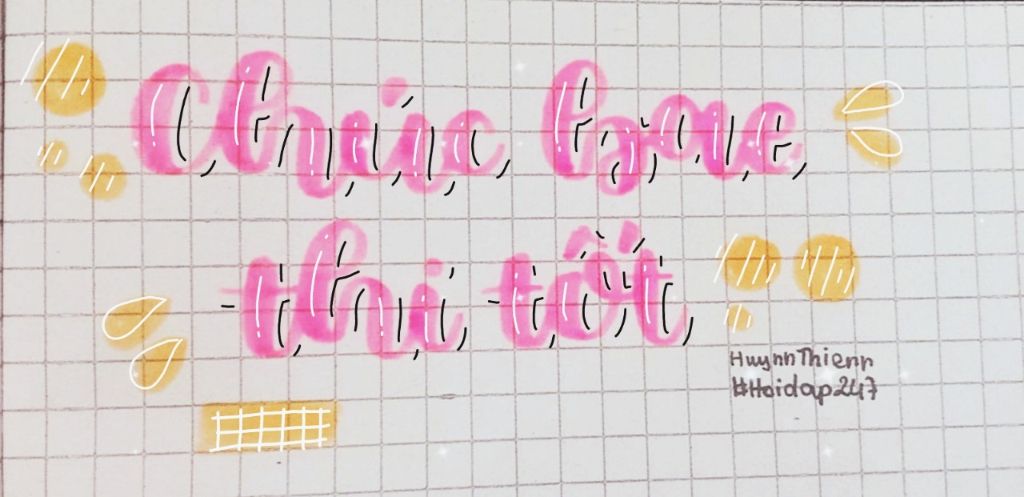 Chúc
thi tốt
HuynnThienn
#Hoidap247